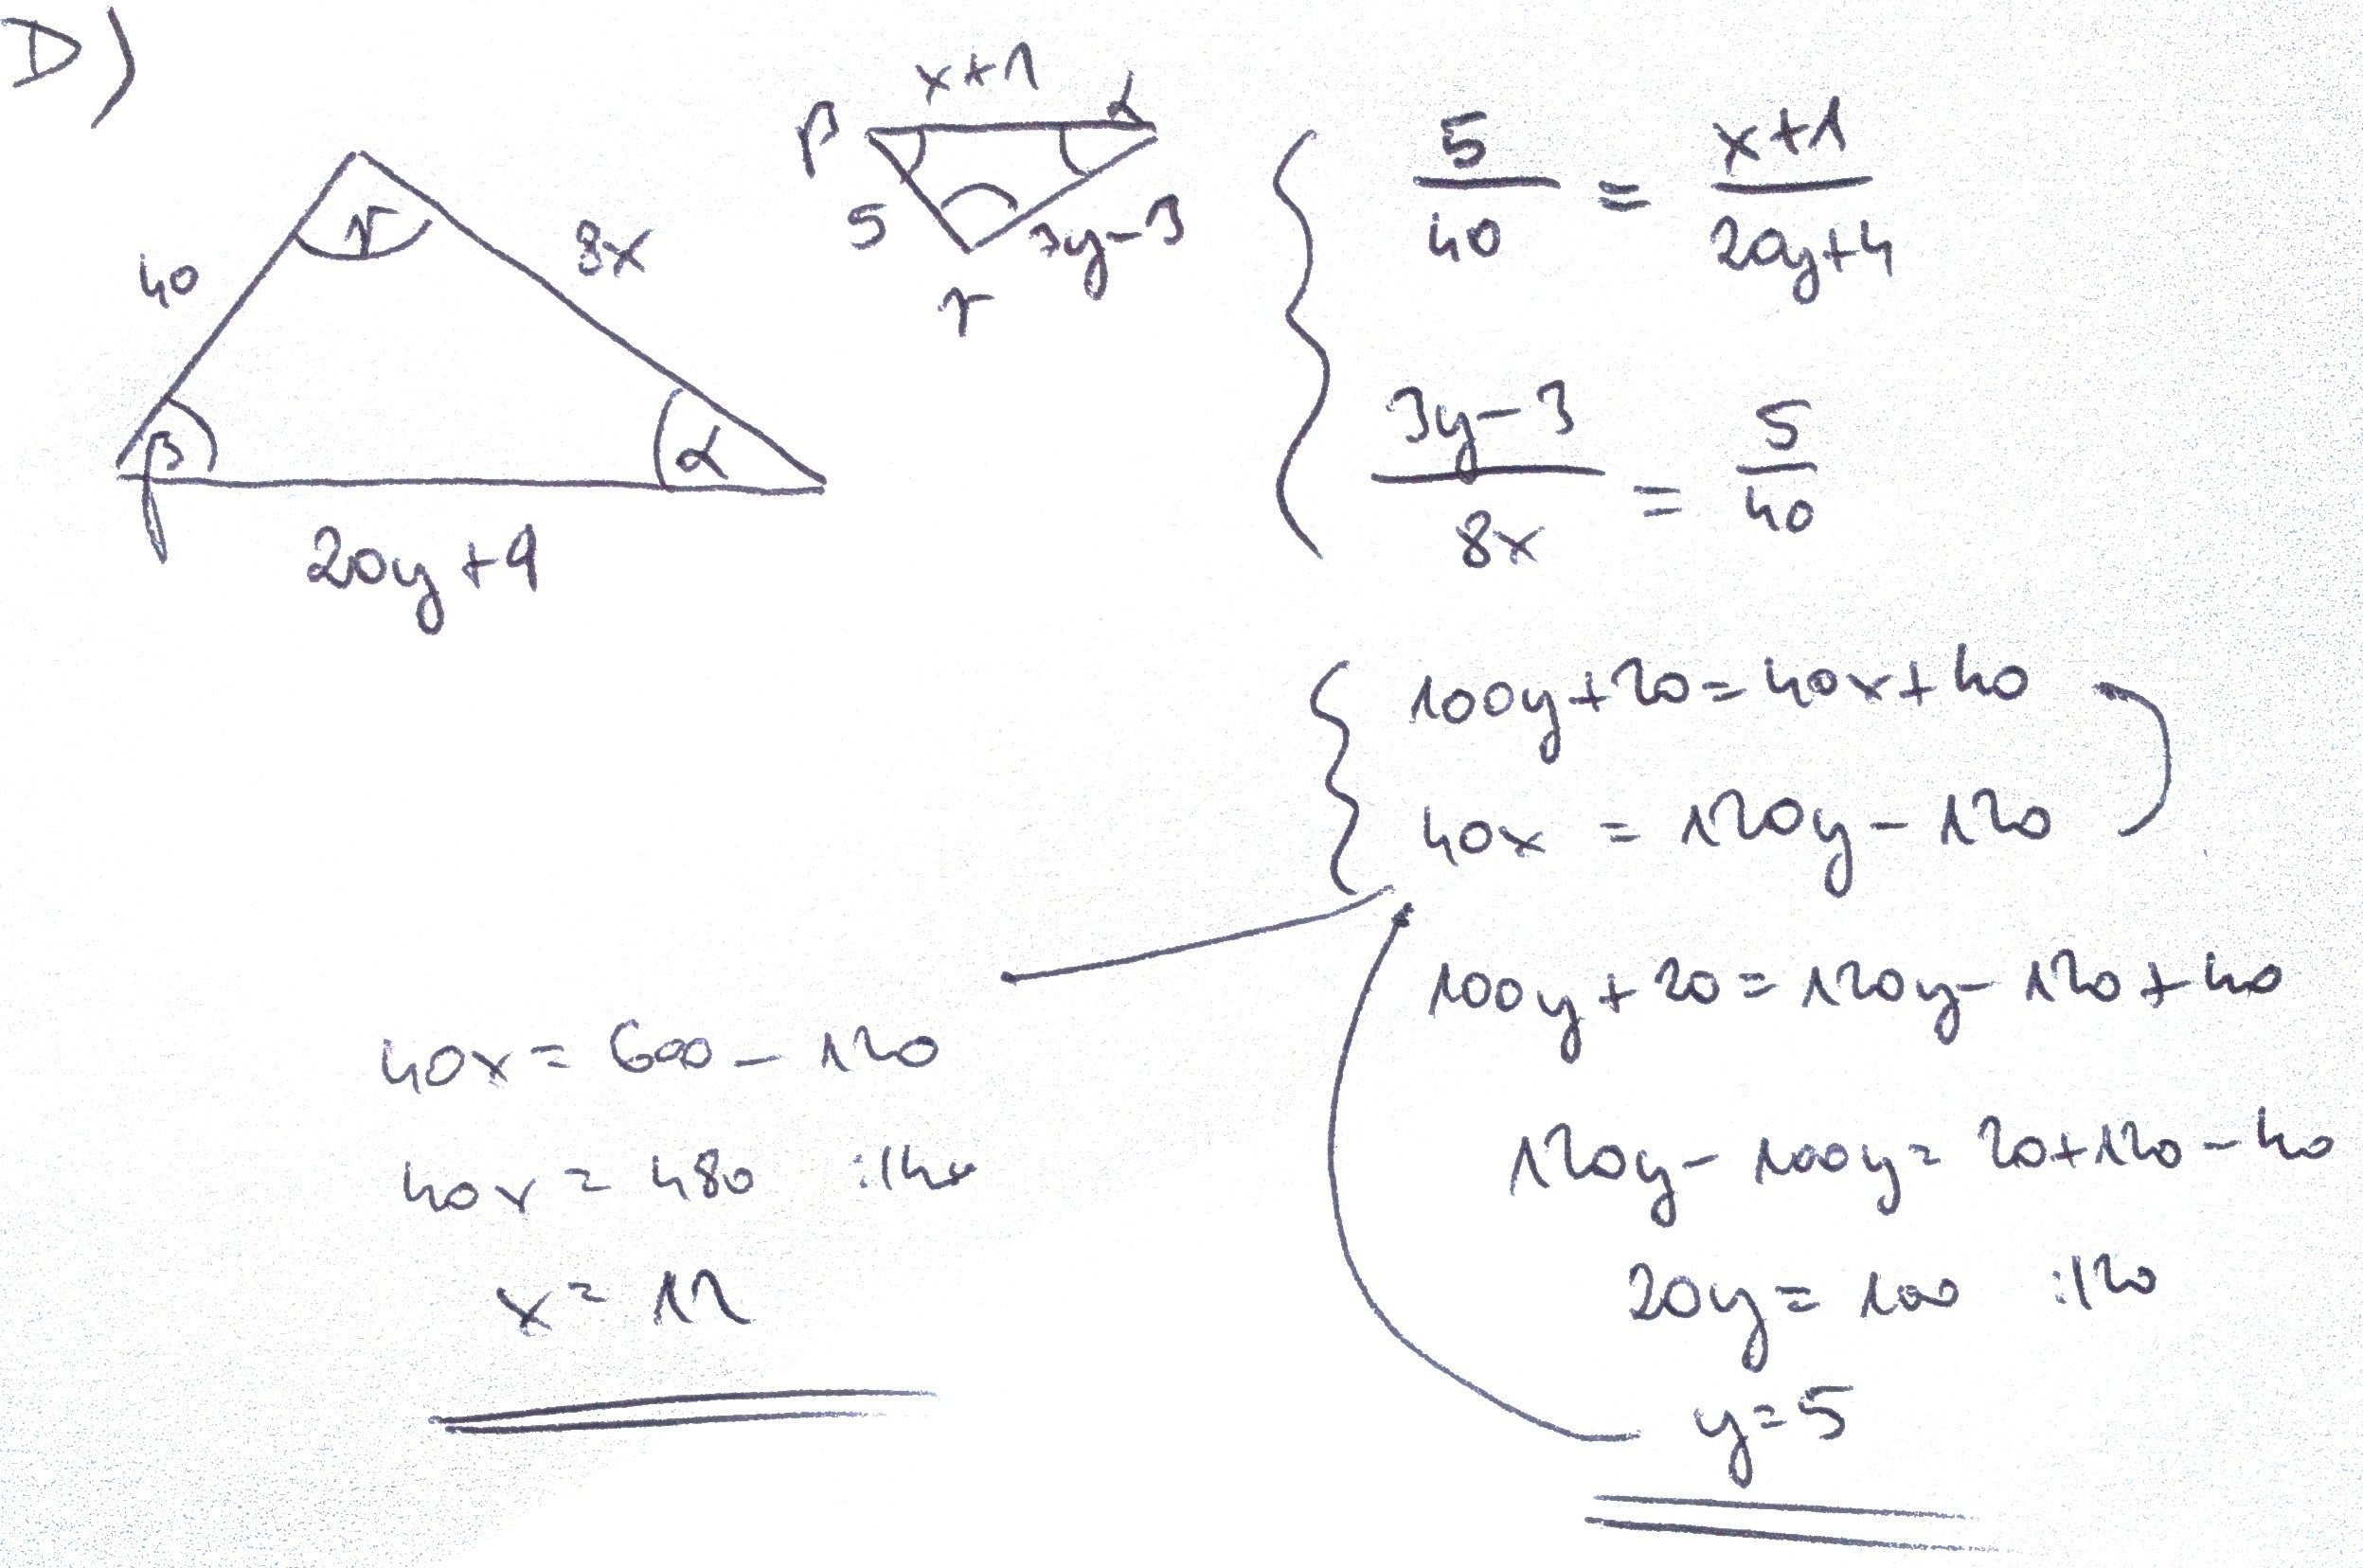 D)
40
γ
8x
β
α
20y+4
x+1
β
α
5
3y-3
γ
5/40 = x+1/20y+4
3y-3/8x = 5/40
100y+20=40x+40
40x = 120y-120
100y+20=120y-120+40
120y-100y=20+120-40
20y=100 :/20
y=5
40x=600-120
40x=480 :/40
x=12